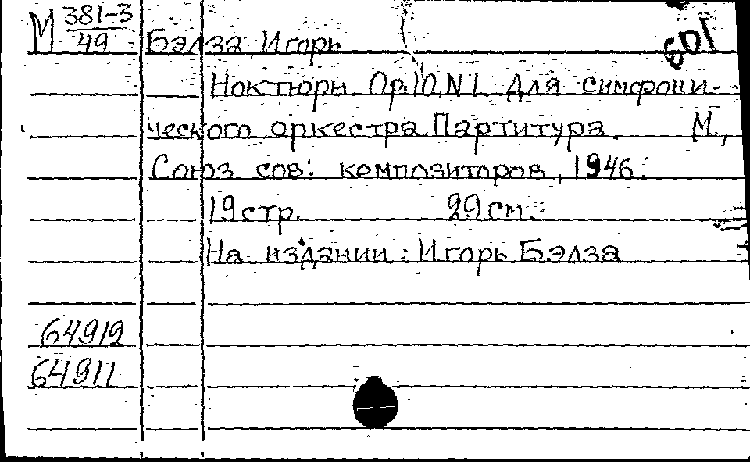 М 381-3
49
Бэлза Игорь
Ноктюрн. Ор.10.N1. Для симфони-
ческого оркестра. Партитура. М.,
Союз сов. композиторов, 1946.
19 стр. 29 см.
На издании: Игорь Бэлза
64912
64911